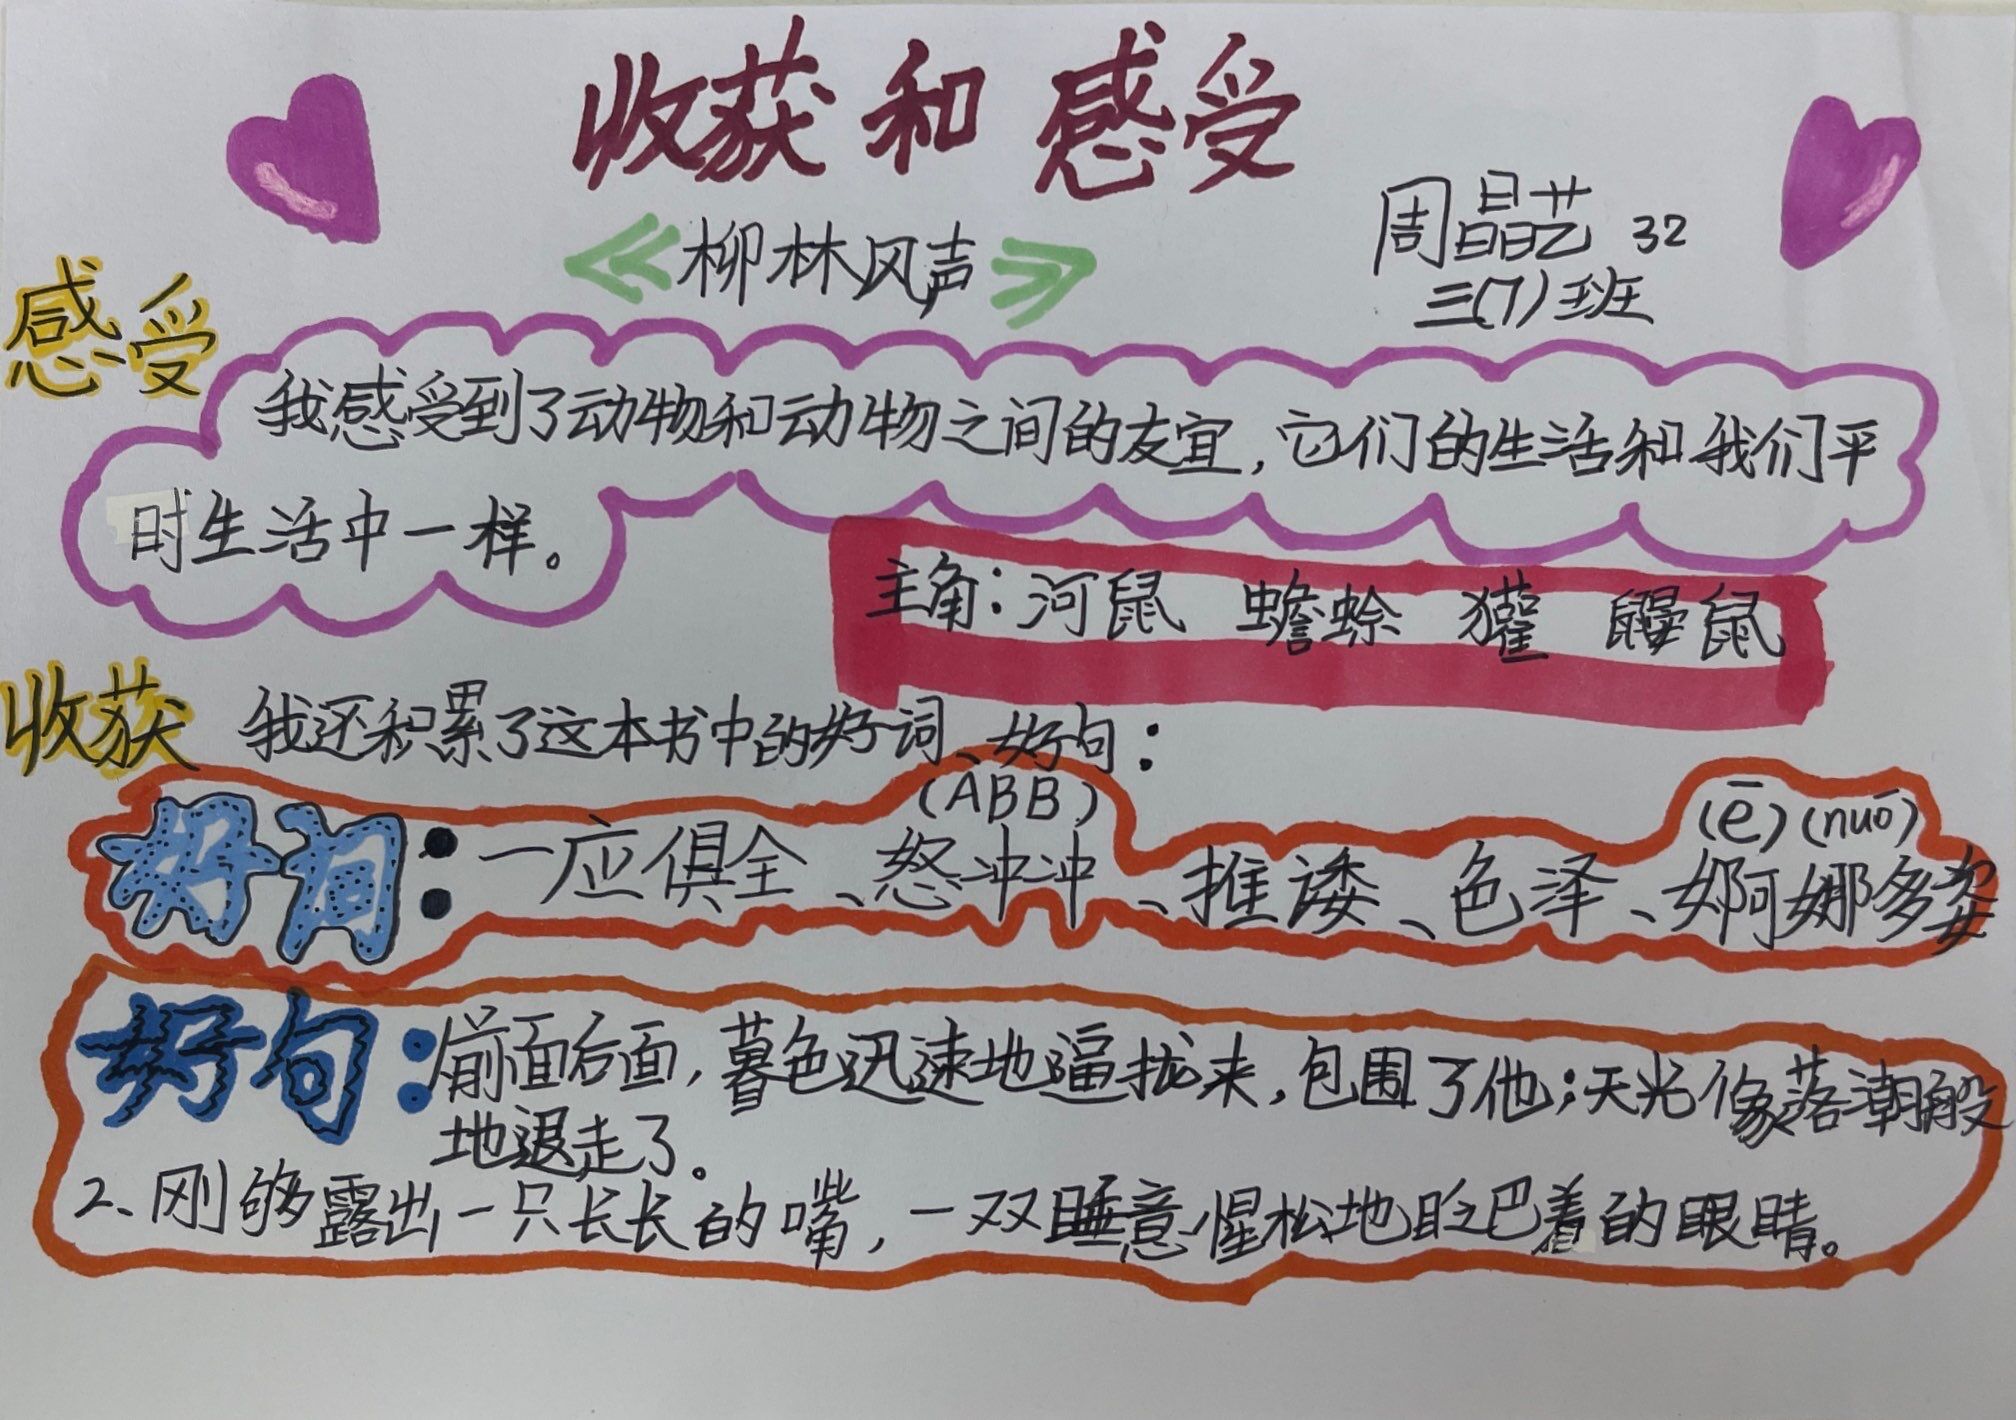 收获和感受
《柳林风声》
周晶艺 32
三(7)班
感受
我感受到了动物和动物之间的友宜,它们的生活和我们平
时生活中一样。
主角:河鼠 蟾蜍 獾 鼹鼠
收获 我还积累了这本书中的好词、好句:
(ABB) (ē)(nuó)
好词:一应俱全、怒冲冲、推诿、色泽、婀娜多姿
好句:前面后面,暮色迅速地逼拢来,包围了他;天光像落潮般
地退走了。
2、刚够露出一只长长的嘴,一双睡意惺松地眨巴着的眼睛。